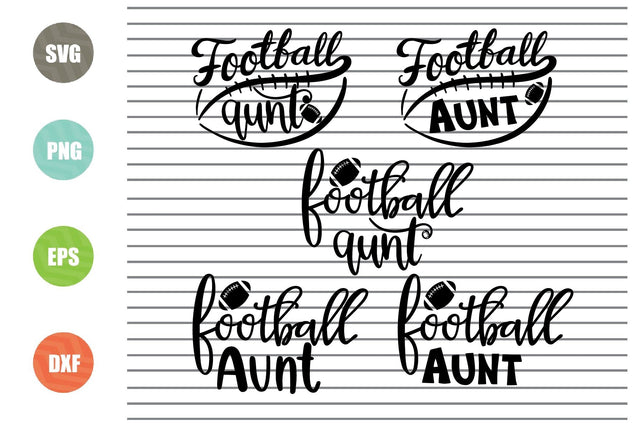 SVG
PNG
EPS
DXF
Football
aunt
Football
AUNT
football
aunt
football
Aunt
football
AUNT